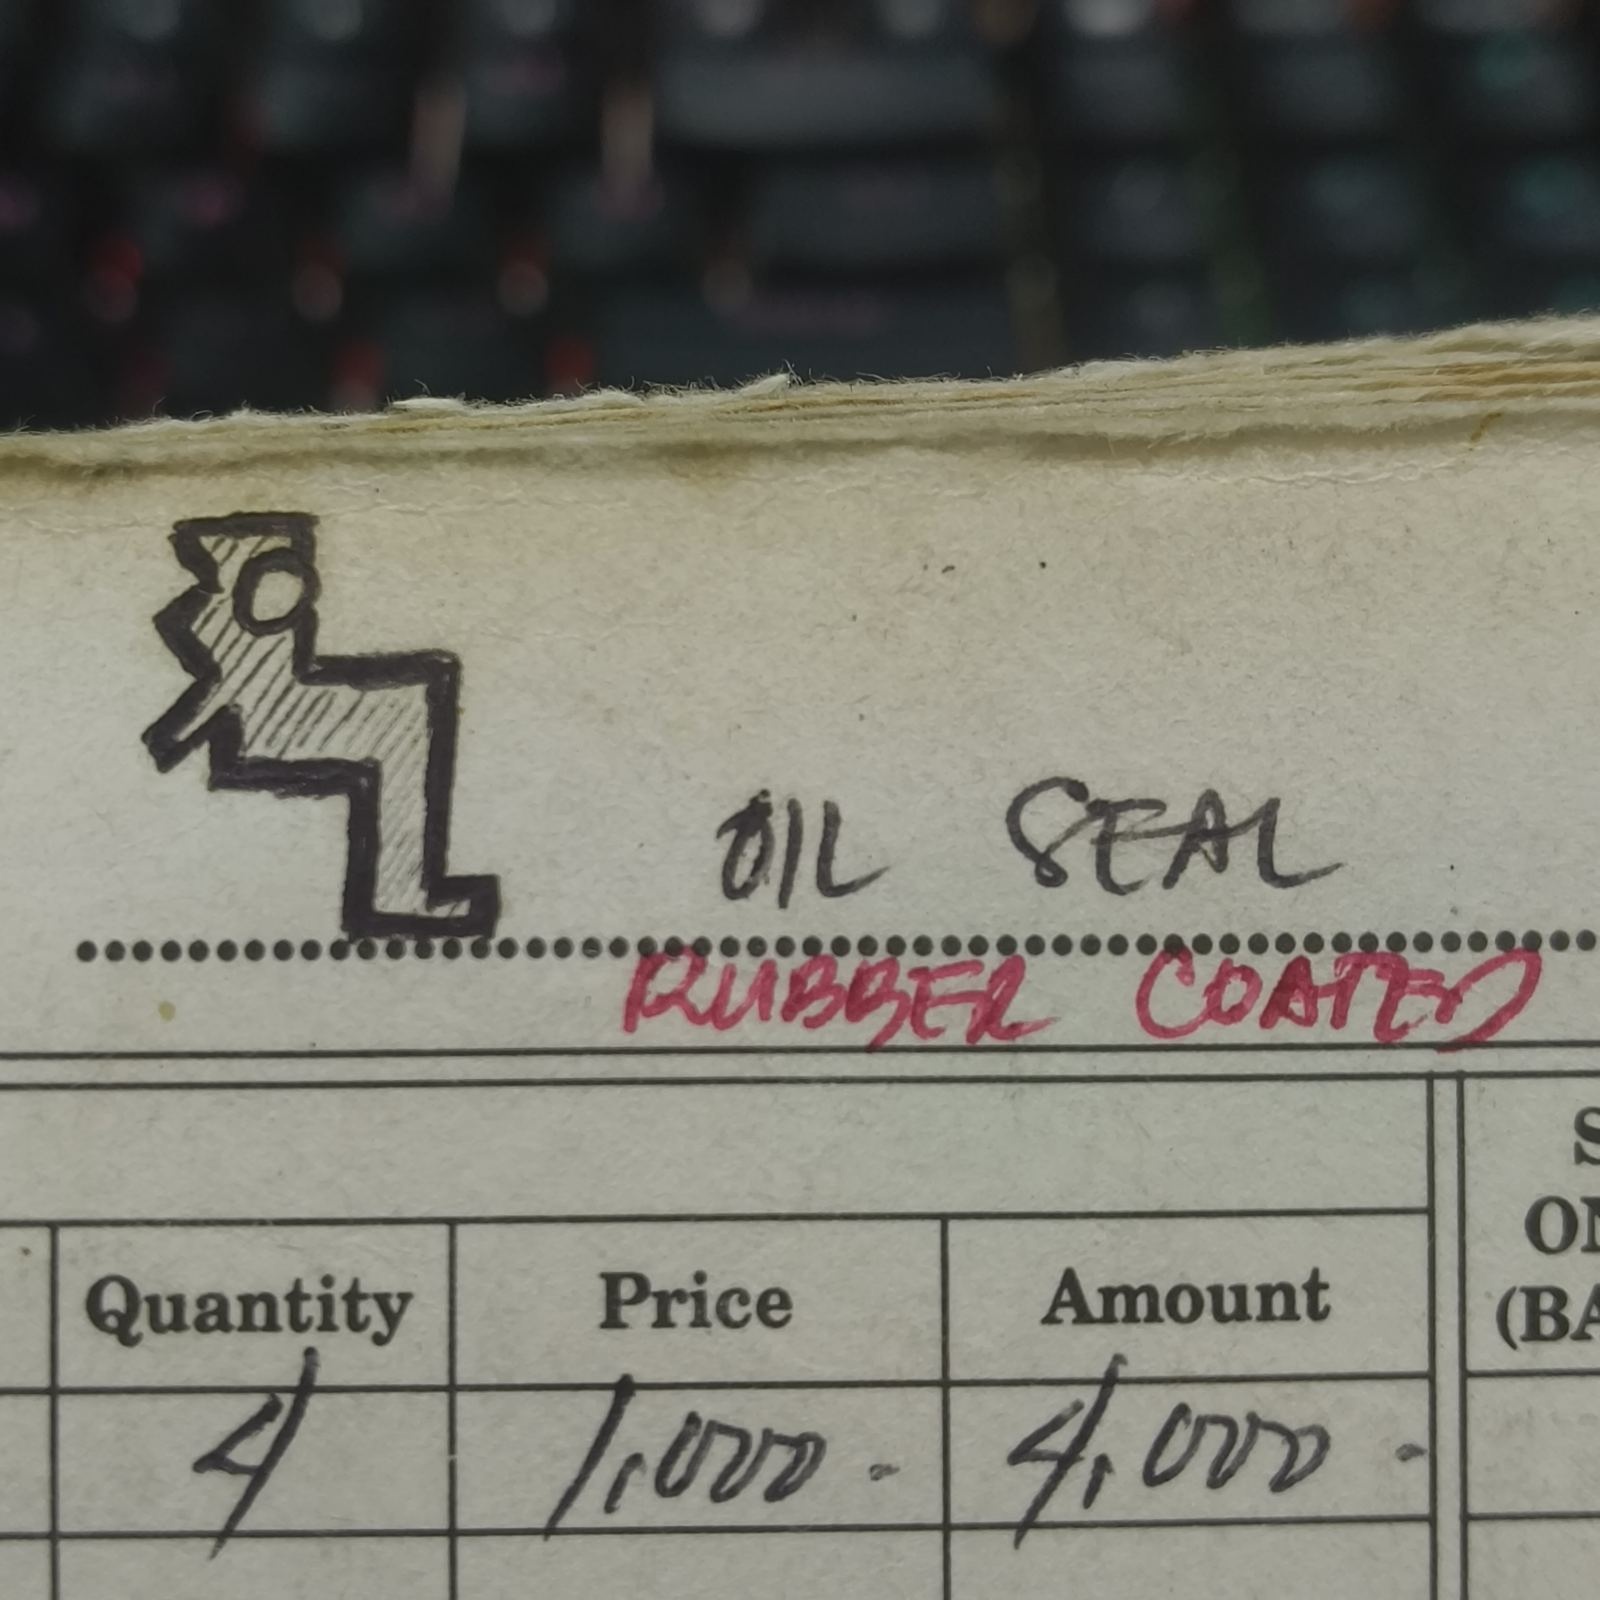 OIL SEAL
RUBBER COATED
S
ON
(BA
Quantity Price Amount
4 1,000.- 4,000 -